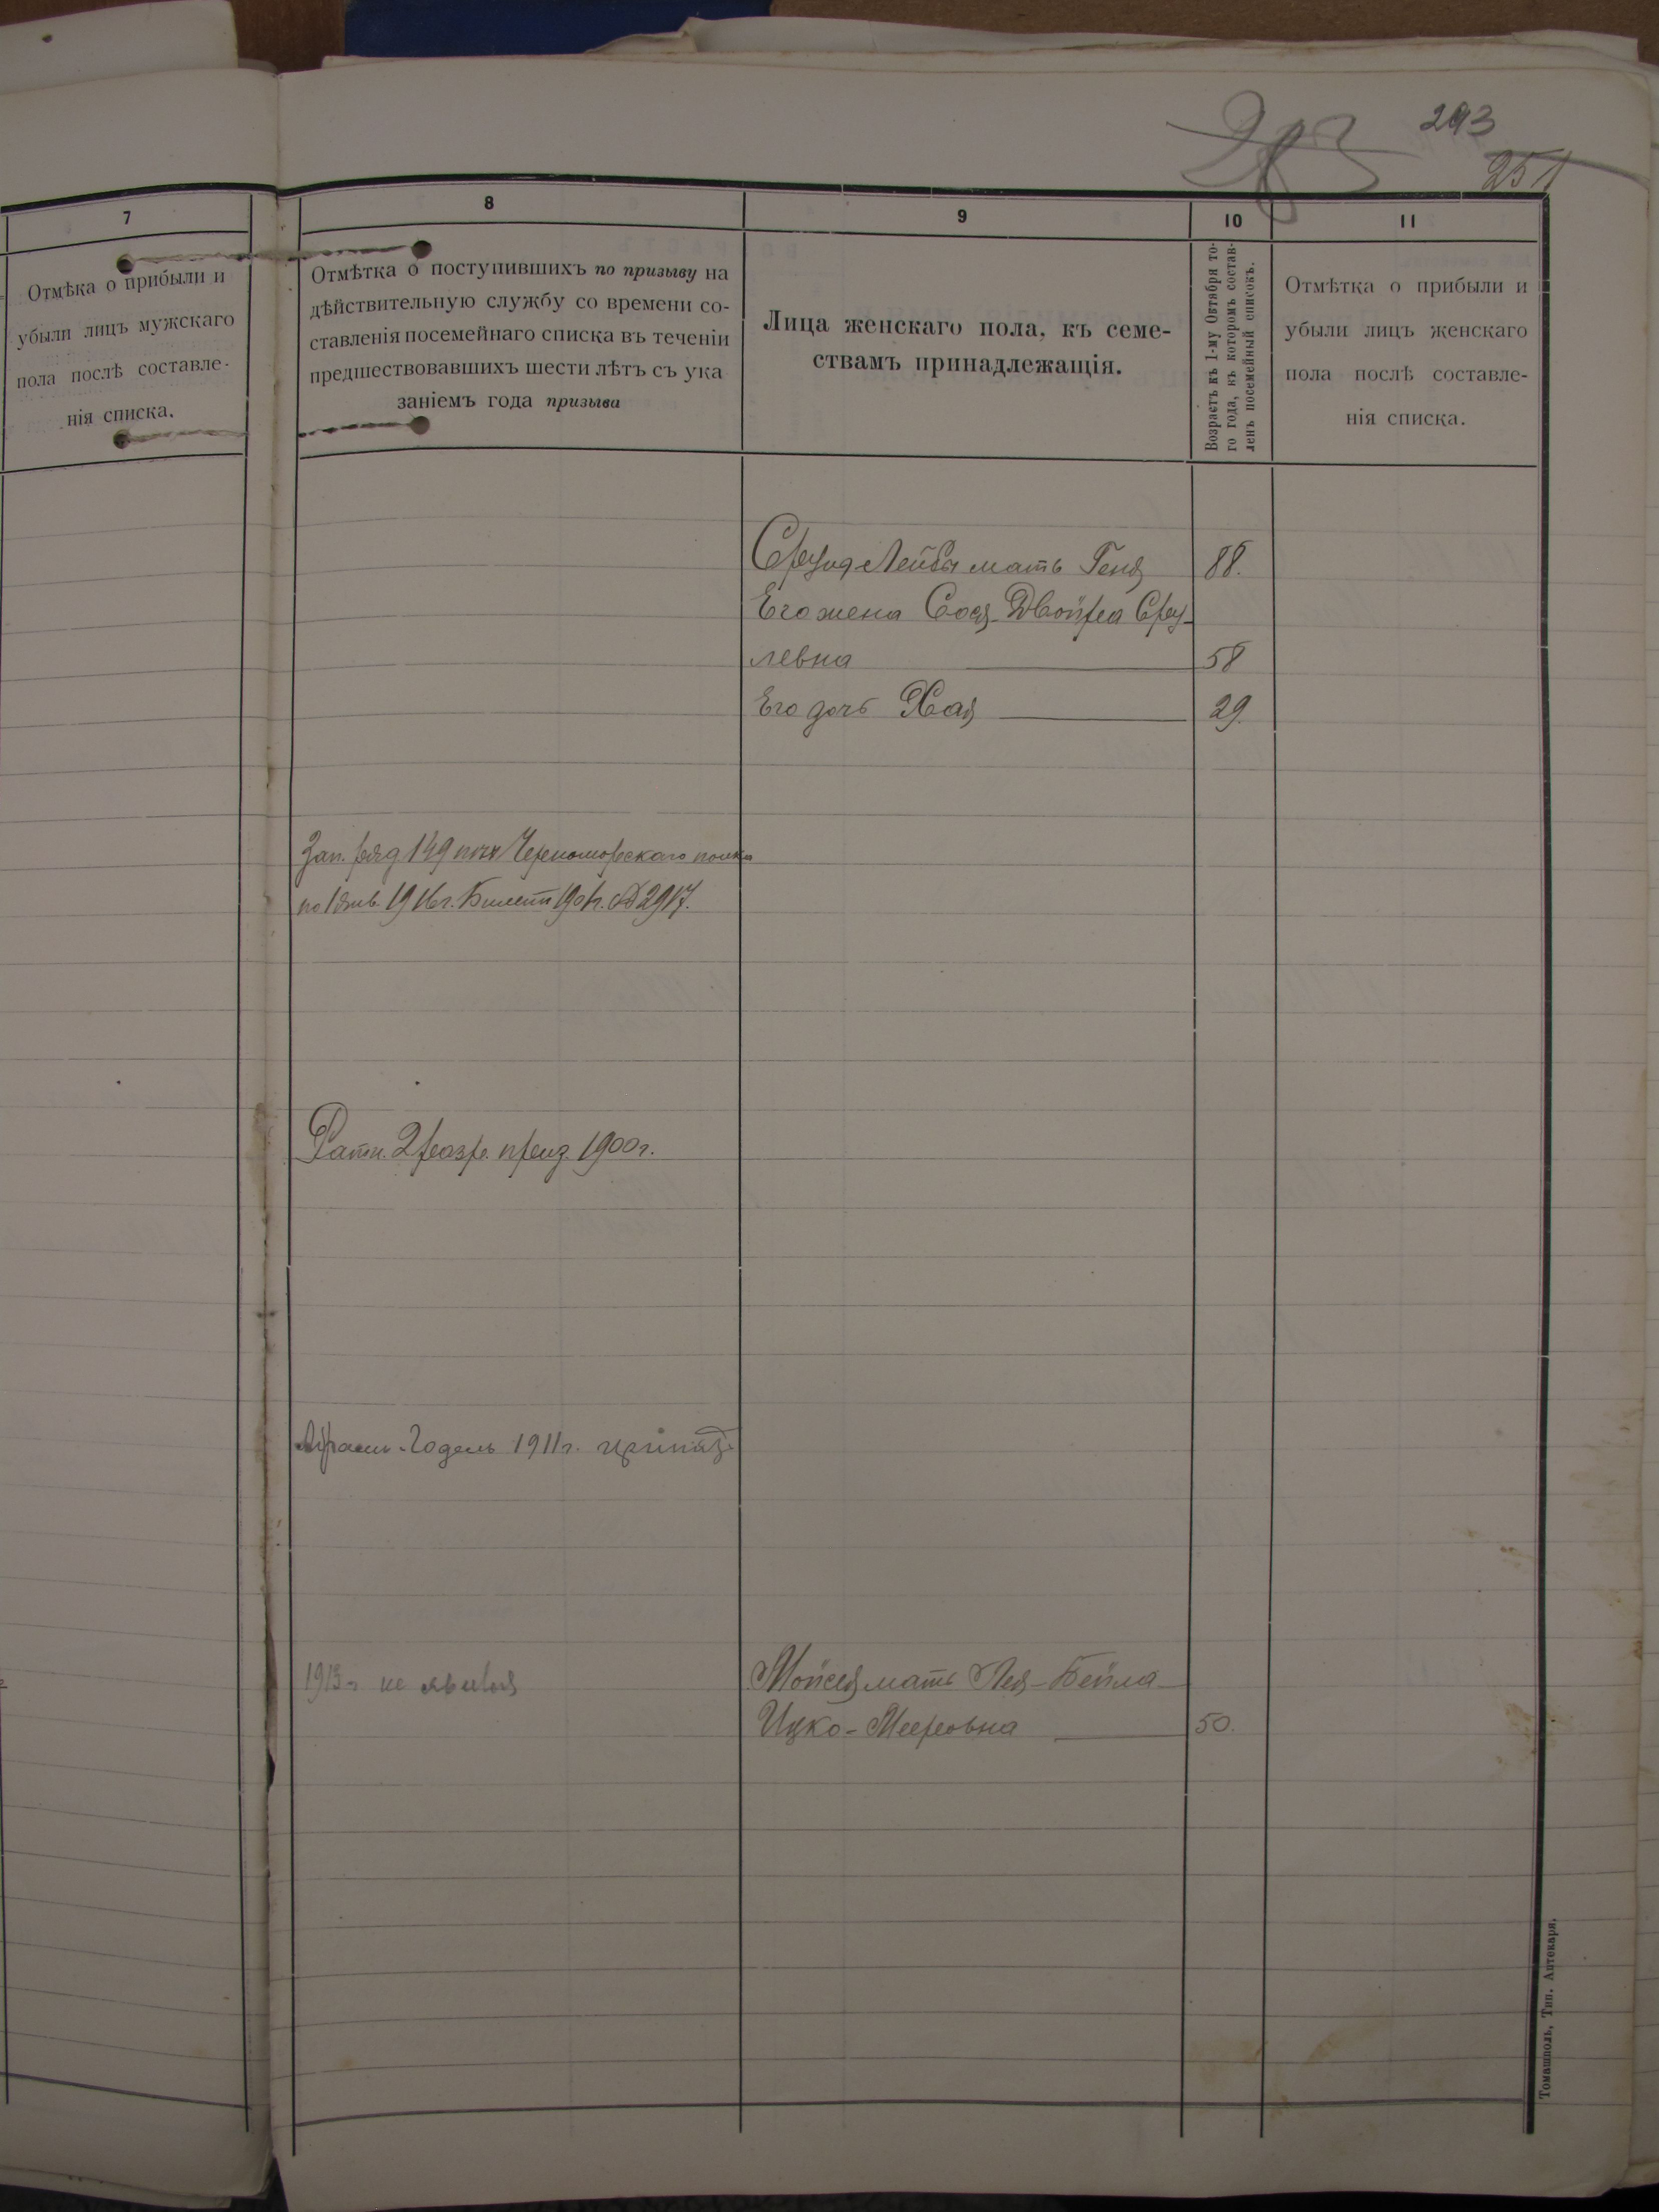 283
293
251
7
8
9
10
11
Отмѣка о прибыли и
убыли лицъ мужскаго
пола послѣ составле-
нія списка.
Отмѣтка о поступившихъ по призыву на
дѣйствительную службу со времени со-
ставленія посемейнаго списка въ теченіи
предшествовавшихъ шести лѣтъ съ ука
заніемъ года призыва
Лица женскаго пола, къ семе-
ствамъ принадлежащія.
Возрастъ къ 1-му Октября то-
го года, къ которомъ состав-
ленъ посемейный списокъ.
Отмѣтка о прибыли и
убыли лицъ женскаго
пола послѣ составле-
нія списка.
Лейбы мать Геня 88.
Его жена Сося-Двойра Сру-
левна 58
Его дочь Хая 29.
Зап. ряд 149 пѣх Черноморскаго полка
по 1 янв. 1916 г. Билетъ 1901 г. № 2917.
Ратн. 2 разр. приз. 1900 г.
Абрамъ-Годель 1911 г.
1913 г не явился
Мойсея мать Лея-Бейла
Ицко-Мееровна 50.
Томашполь, Тип. Аптекаря.